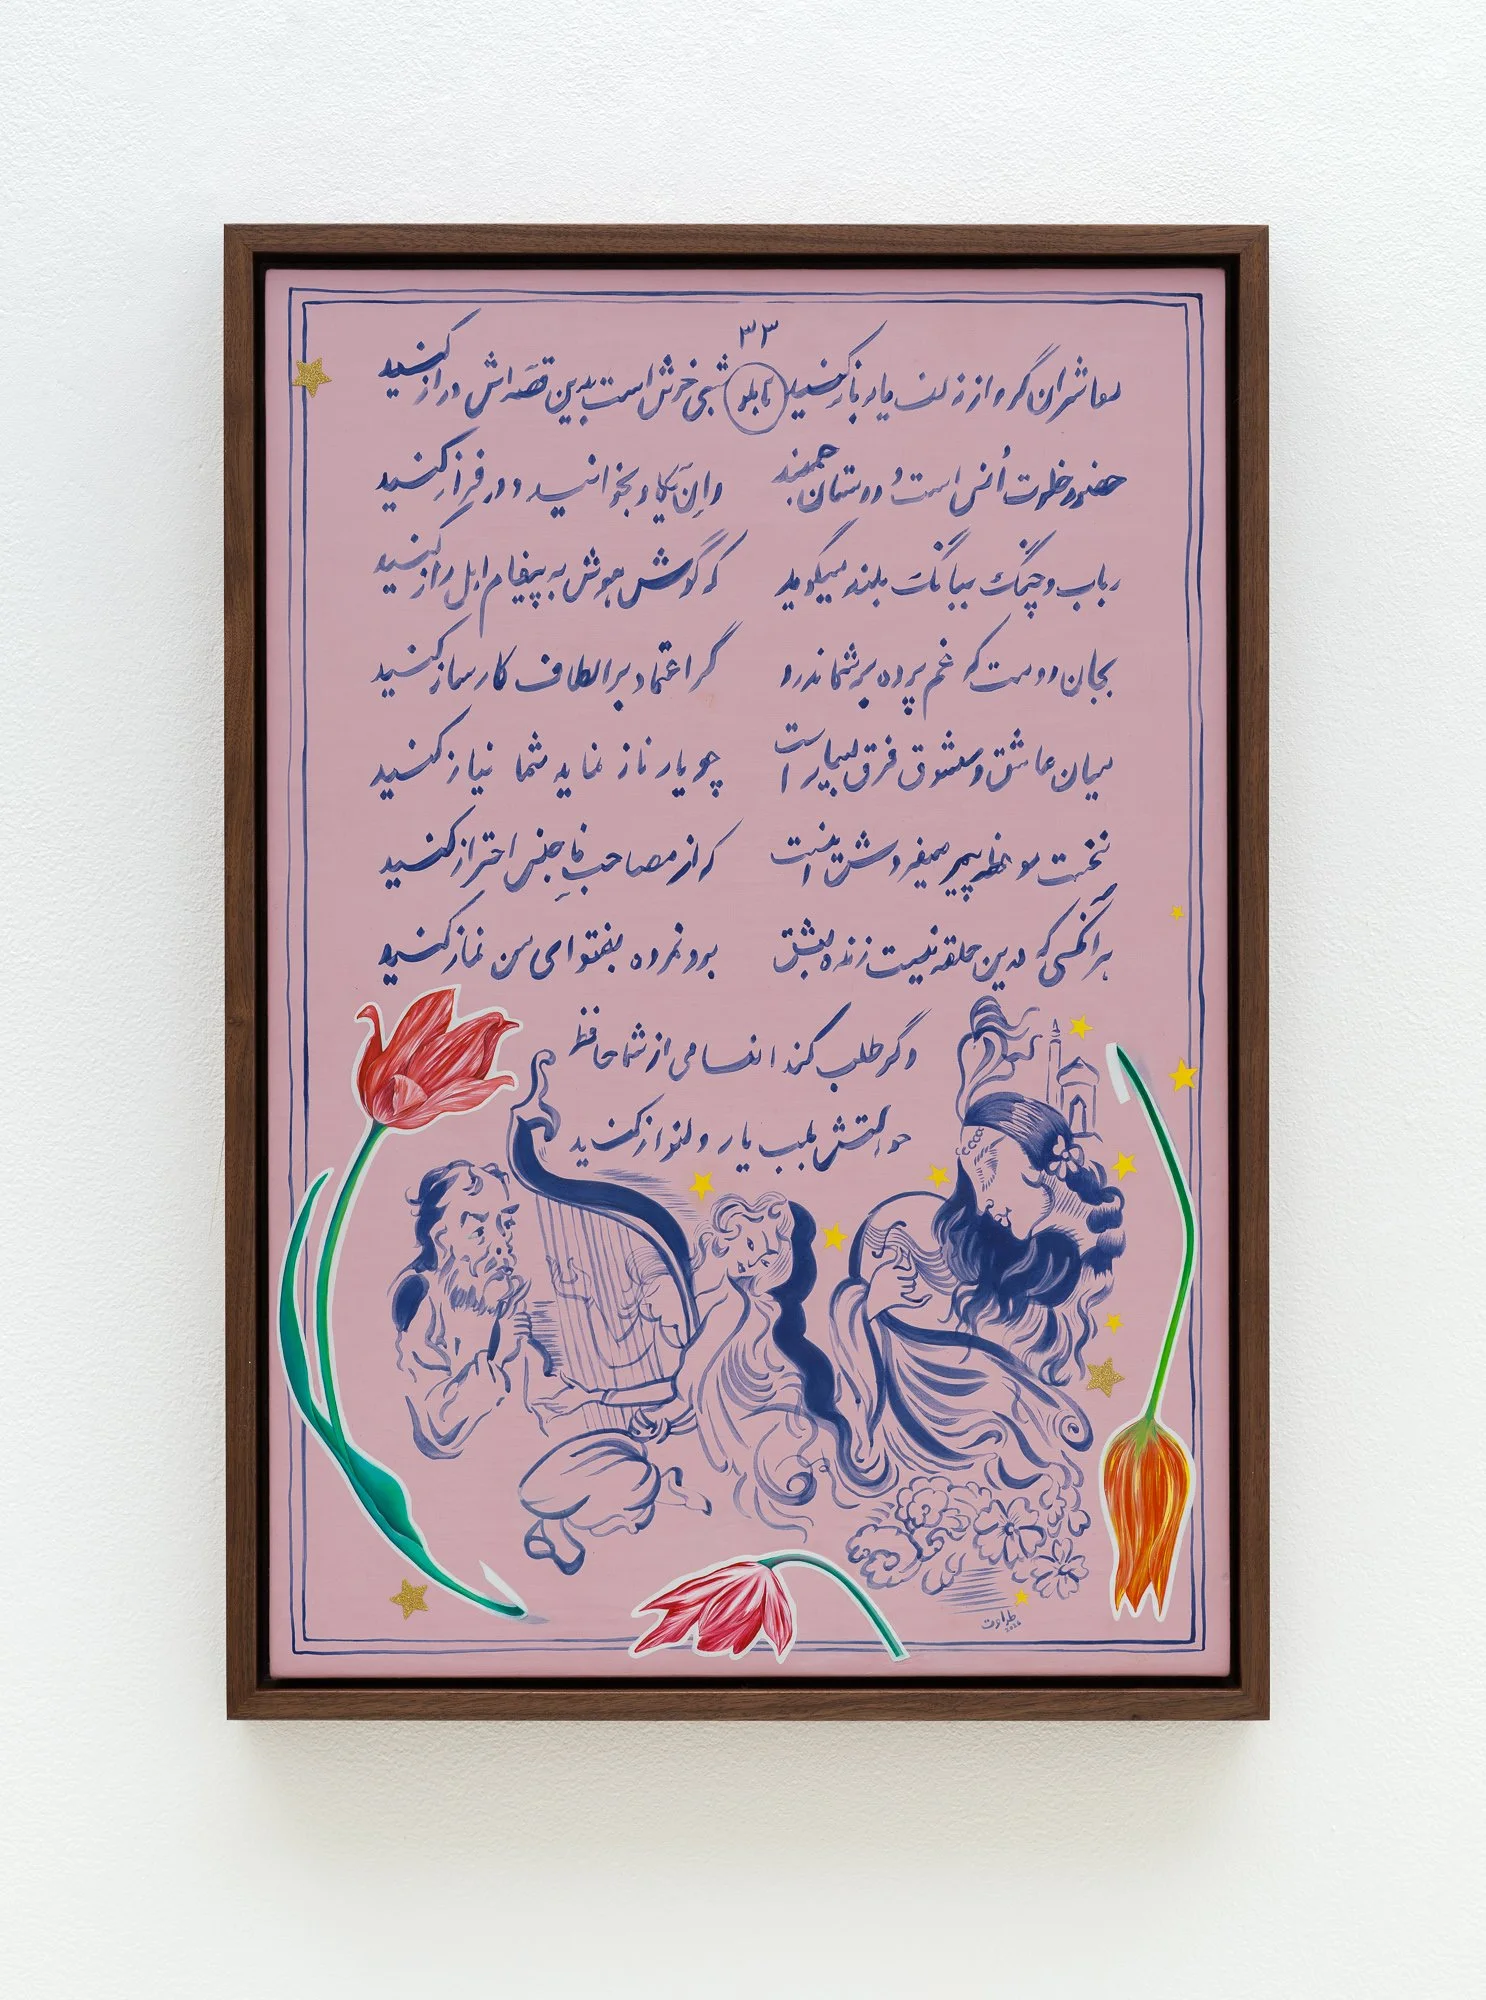 ۳۳
معاشران گره از زلف یار باز کنید تابلو شبی خوش است بدین قصّه اش دراز کنید
حضور خلوت اُنس است و دوستان جمعند وان یکاد بخوانید و در فراز کنید
رباب و چنگ ببانگ بلند میگوید که گوش هوش به پیغام اهل راز کنید
بجان دوست که غم پرده بر شما ندرد گر اعتماد بر الطاف کارساز کنید
میان عاشق و معشوق فرق بسیار است چو یار ناز نماید شما نیاز کنید
نخست موعظه پیر میفروش اینست که از مصاحبِ ناجنس احتراز کنید
هر آنکسی که درین حلقه نیست زنده بعشق برو نمرده بفتوای من نماز کنید
وگر طلب کند انعامی از شما حافظ
حوالتش بلب یار دلنواز کنید
طراوت
2026